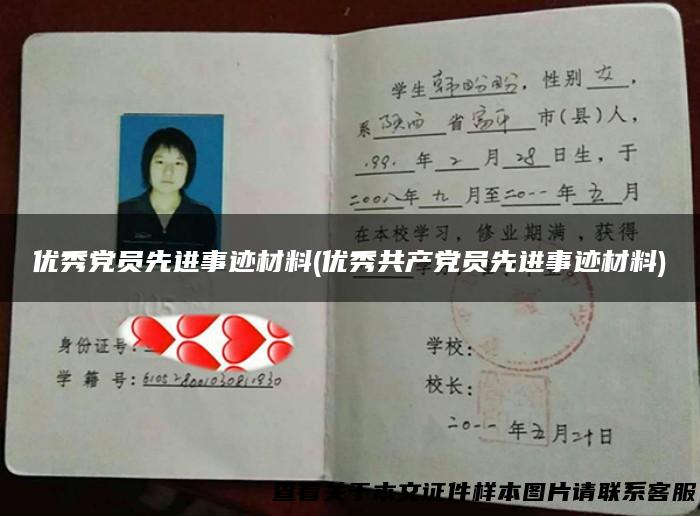 学生韩盼盼，性别女，
系陕西省富平市(县)人，
1991年2月28日生，于
二00八年九月至二0一一年五月
在本校学习，修业期满，获得
优秀党员先进事迹材料(优秀共产党员先进事迹材料)
身份证号:
学籍号:
学校:
校长:
二0一一年五月二十日
查看关于本文证件样本图片请联系客服